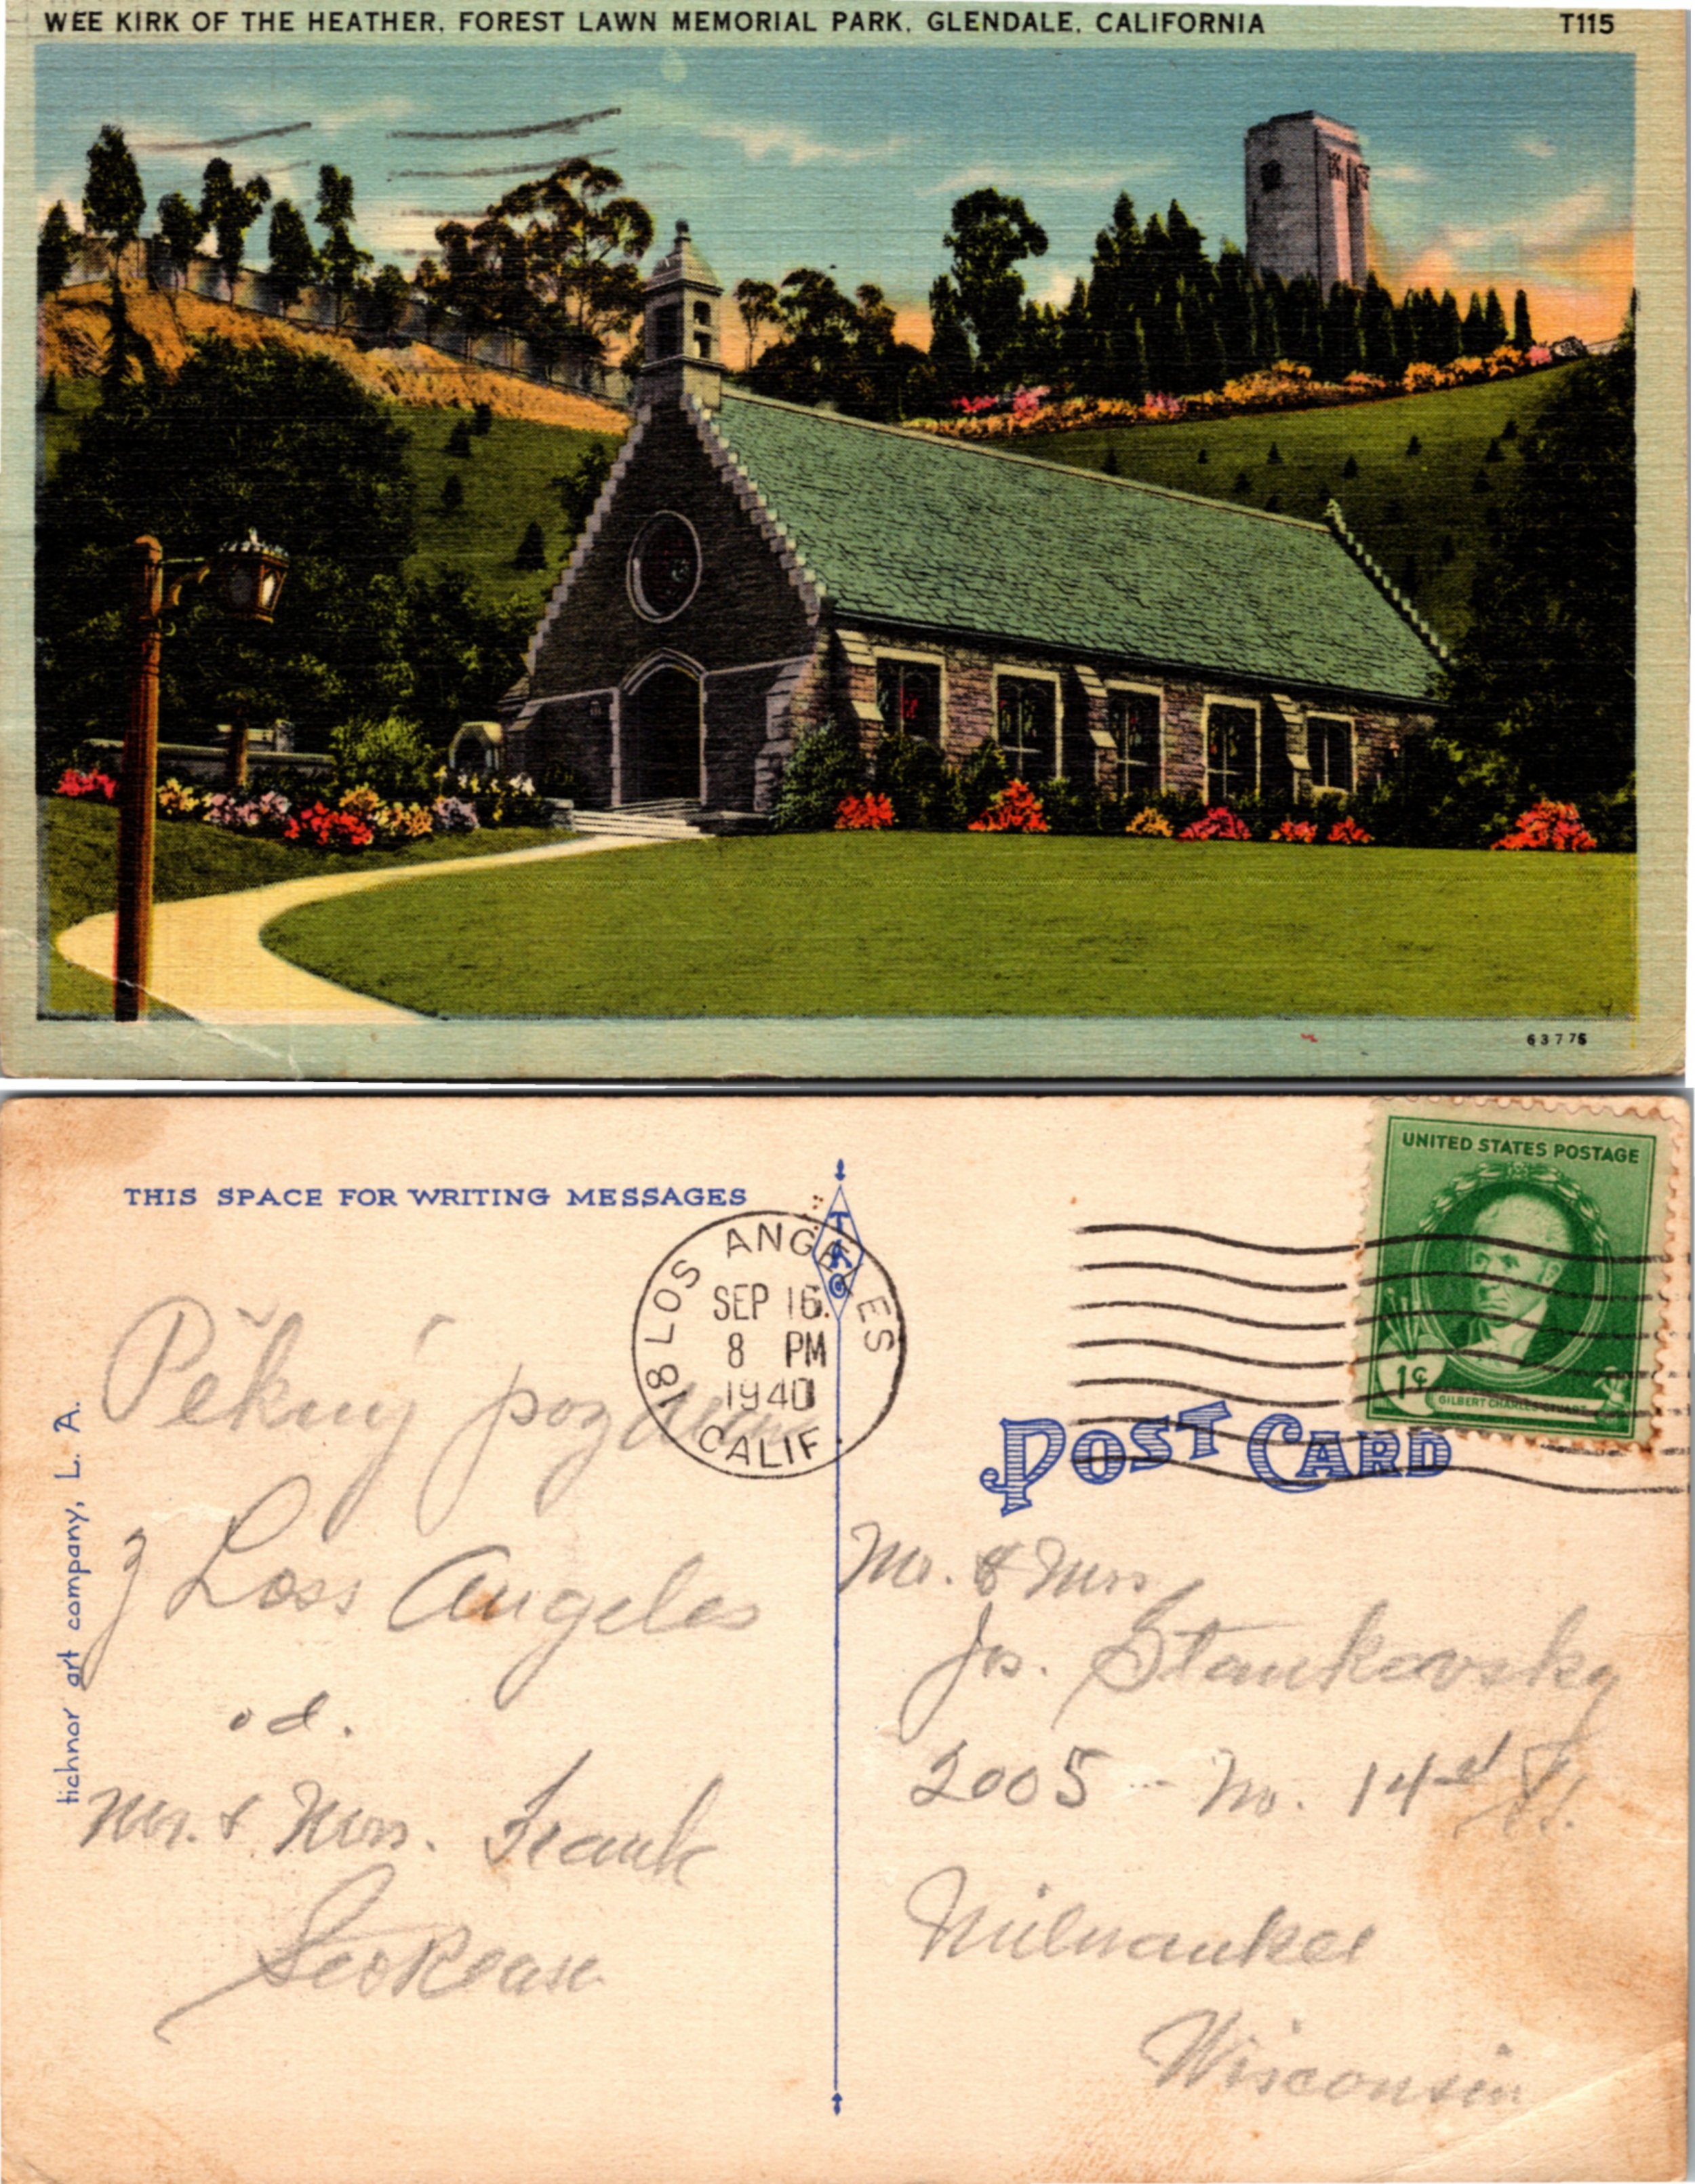 WEE KIRK OF THE HEATHER, FOREST LAWN MEMORIAL PARK, GLENDALE, CALIFORNIA
T115
63776
THIS SPACE FOR WRITING MESSAGES
TAC
LOS ANGELES
18
SEP 16.
8 PM
1940
CALIF.
UNITED STATES POSTAGE
1¢
GILBERT CHARLES STUART
POST CARD
tichnor art company, L. A.
Pěkný pozdrav
z Loss Angeles
od.
Mr. & Mrs. Frank
Mr. & Mrs
Jos. Stankovsky
2005 - No. 14 St.
Milwaukee
Wisconsin